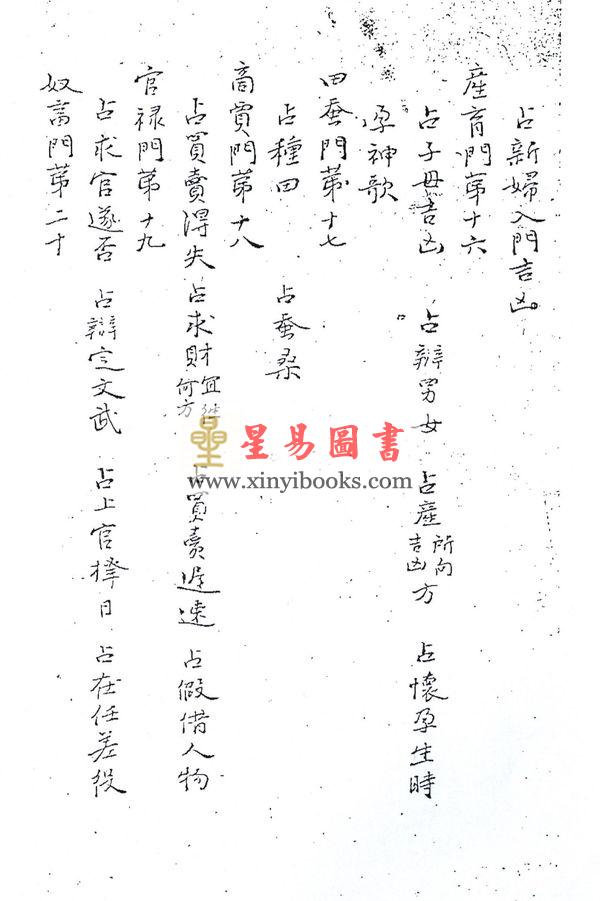 占新婦入門吉凶
産育門第十六
占子母吉凶 占辯男女 占産所向吉凶方 占懷孕生時
孕神歌
田蚕門第十七
占種田 占蚕桑
商賈門第十八
占買賣得失 占求財宜何方 占買賣遲速 占假借人物
官禄門第十九
占求官遂否 占辯定文武 占上官擇日 占在任差役
奴畜門第二十
星易圖書
www.xinyibooks.com